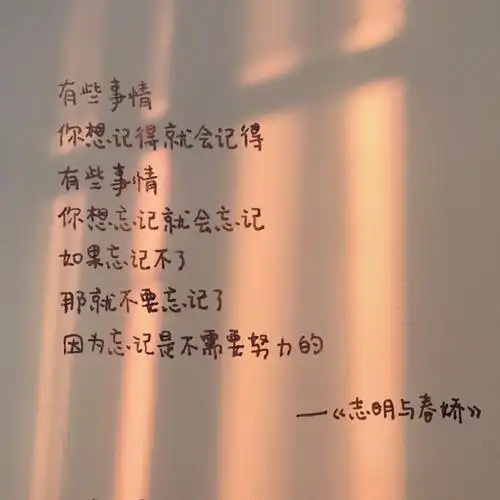 有些事情
你想记得就会记得
有些事情
你想忘记就会忘记
如果忘记不了
那就不要忘记了
因为忘记是不需要努力的
—《志明与春娇》